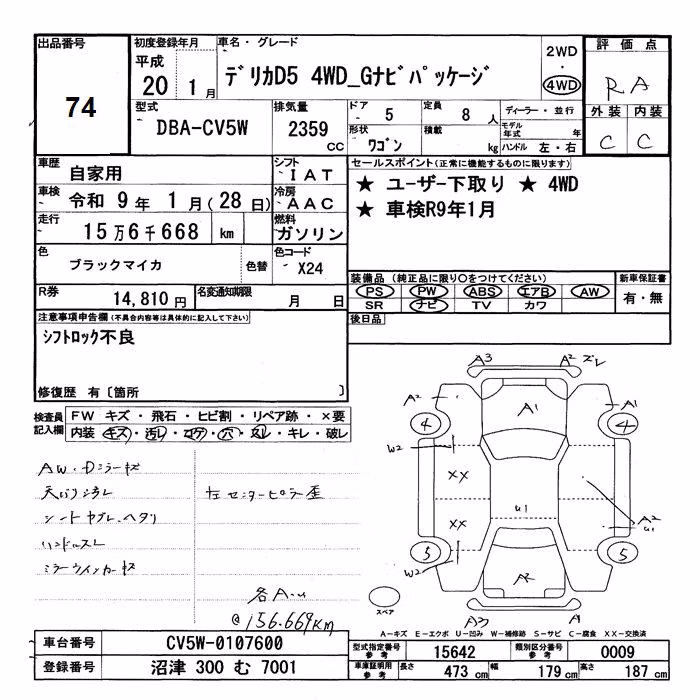 出品番号
74
初度登録年月
平成
20 1月
車名・グレード
デリカD5 4WD_Gナビパッケージ
2WD
・
4WD
評価点
RA
外装 内装
C C
型式
DBA-CV5W
排気量
2359
CC
ドア 5
定員 8人
ディーラー・並行
形状 ワゴン
積載 kg
モデル年式 年
ハンドル 左・右
車歴 自家用
シフト IAT
セールスポイント(正常に機能するものに限ります)
★ ユーザー下取り ★ 4WD
★ 車検R9年1月
車検 令和 9年 1月(28日)
冷房 AAC
走行 15万6千668 km
燃料 ガソリン
色 ブラックマイカ 色替
色コード X24
R券 14,810円
名変通知期限 月 日
装備品(純正品に限り○をつけてください)
新車保証書
PS PW ABS エアB AW
SR ナビ TV カワ
有・無
後日品
注意事項申告欄(不具合内容等は具体的に記入して下さい)
シフトロック不良
修復歴 有〔箇所 〕
検査員記入欄
FW キズ・飛石・ヒビ割・リペア跡・×要
内装 キズ・汚レ・コゲ・穴・スレ・キレ・破レ
AW・Dミラーキズ
天バリ汚レ
シートヤブレ、ヘタリ
ハンドルスレ
ミラーウインカーキズ
左センターピラー歪
各A-u
@156.669KM
A3 A2 ズレ
A2 A1 A1
4 4
W2
XX
XX
U1
A2
U1
5 5
W2
A2
スペア
A3 A1
A-キズ E-エクボ U-凹み W-補修跡 S-サビ C-腐食 XX-交換済
車台番号 CV5W-0107600
型式指定番号 参考 15642
類別区分番号 参考 0009
登録番号 沼津 300 む 7001
車庫証明用 参考 長さ 473 cm 幅 179 cm 高さ 187 cm